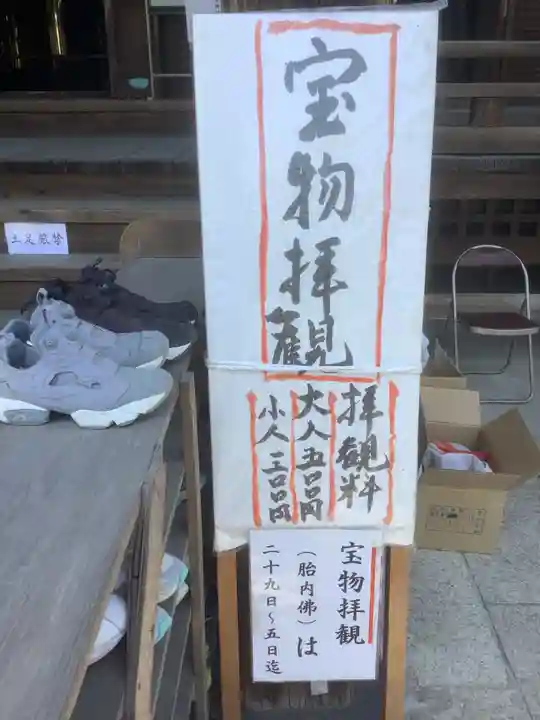 宝物拝観
拝観料
大人五〇〇円
小人三〇〇円
宝物拝観
(胎内佛)は
二十九日~五日迄
土足厳禁